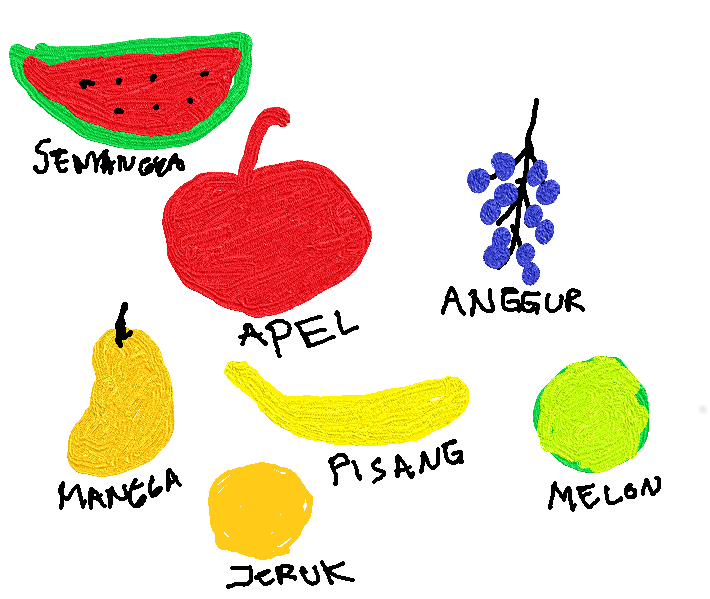 SEMANGKA
APEL
ANGGUR
MANGGA
PISANG
MELON
JERUK